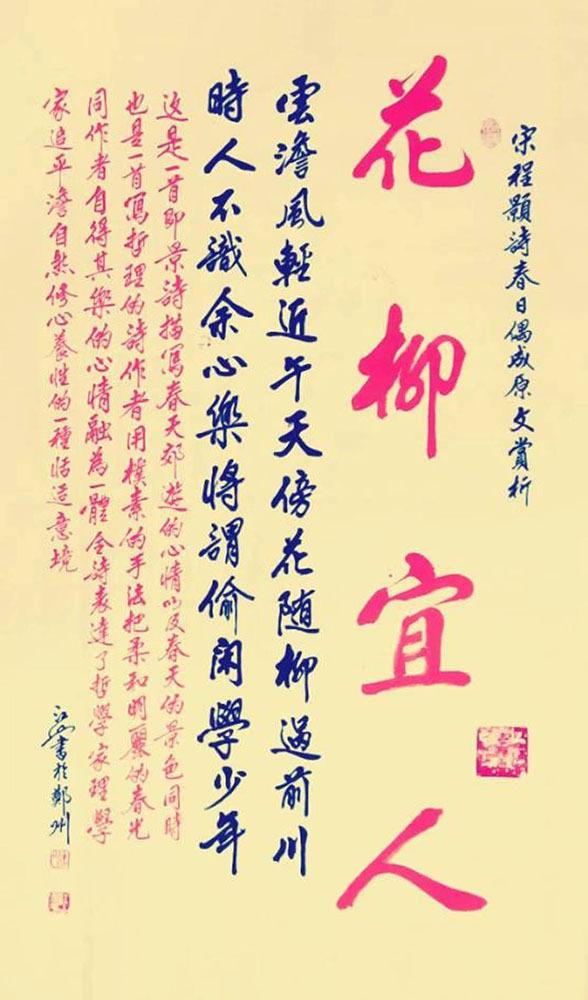 宋程顥詩春日偶成原文賞析
花柳宜人
雲澹風輕近午天傍花随柳過前川
時人不識余心樂將謂偷閑學少年
这是一首即景詩描寫春天郊遊的心情以及春天的景色同時
也是一首寫哲理的詩作者用樸素的手法把柔和明麗的春光
同作者自得其樂的心情融為一體全詩表達了哲學家理學
家追平澹自然修心養性的一種恬造意境
書於鄭州